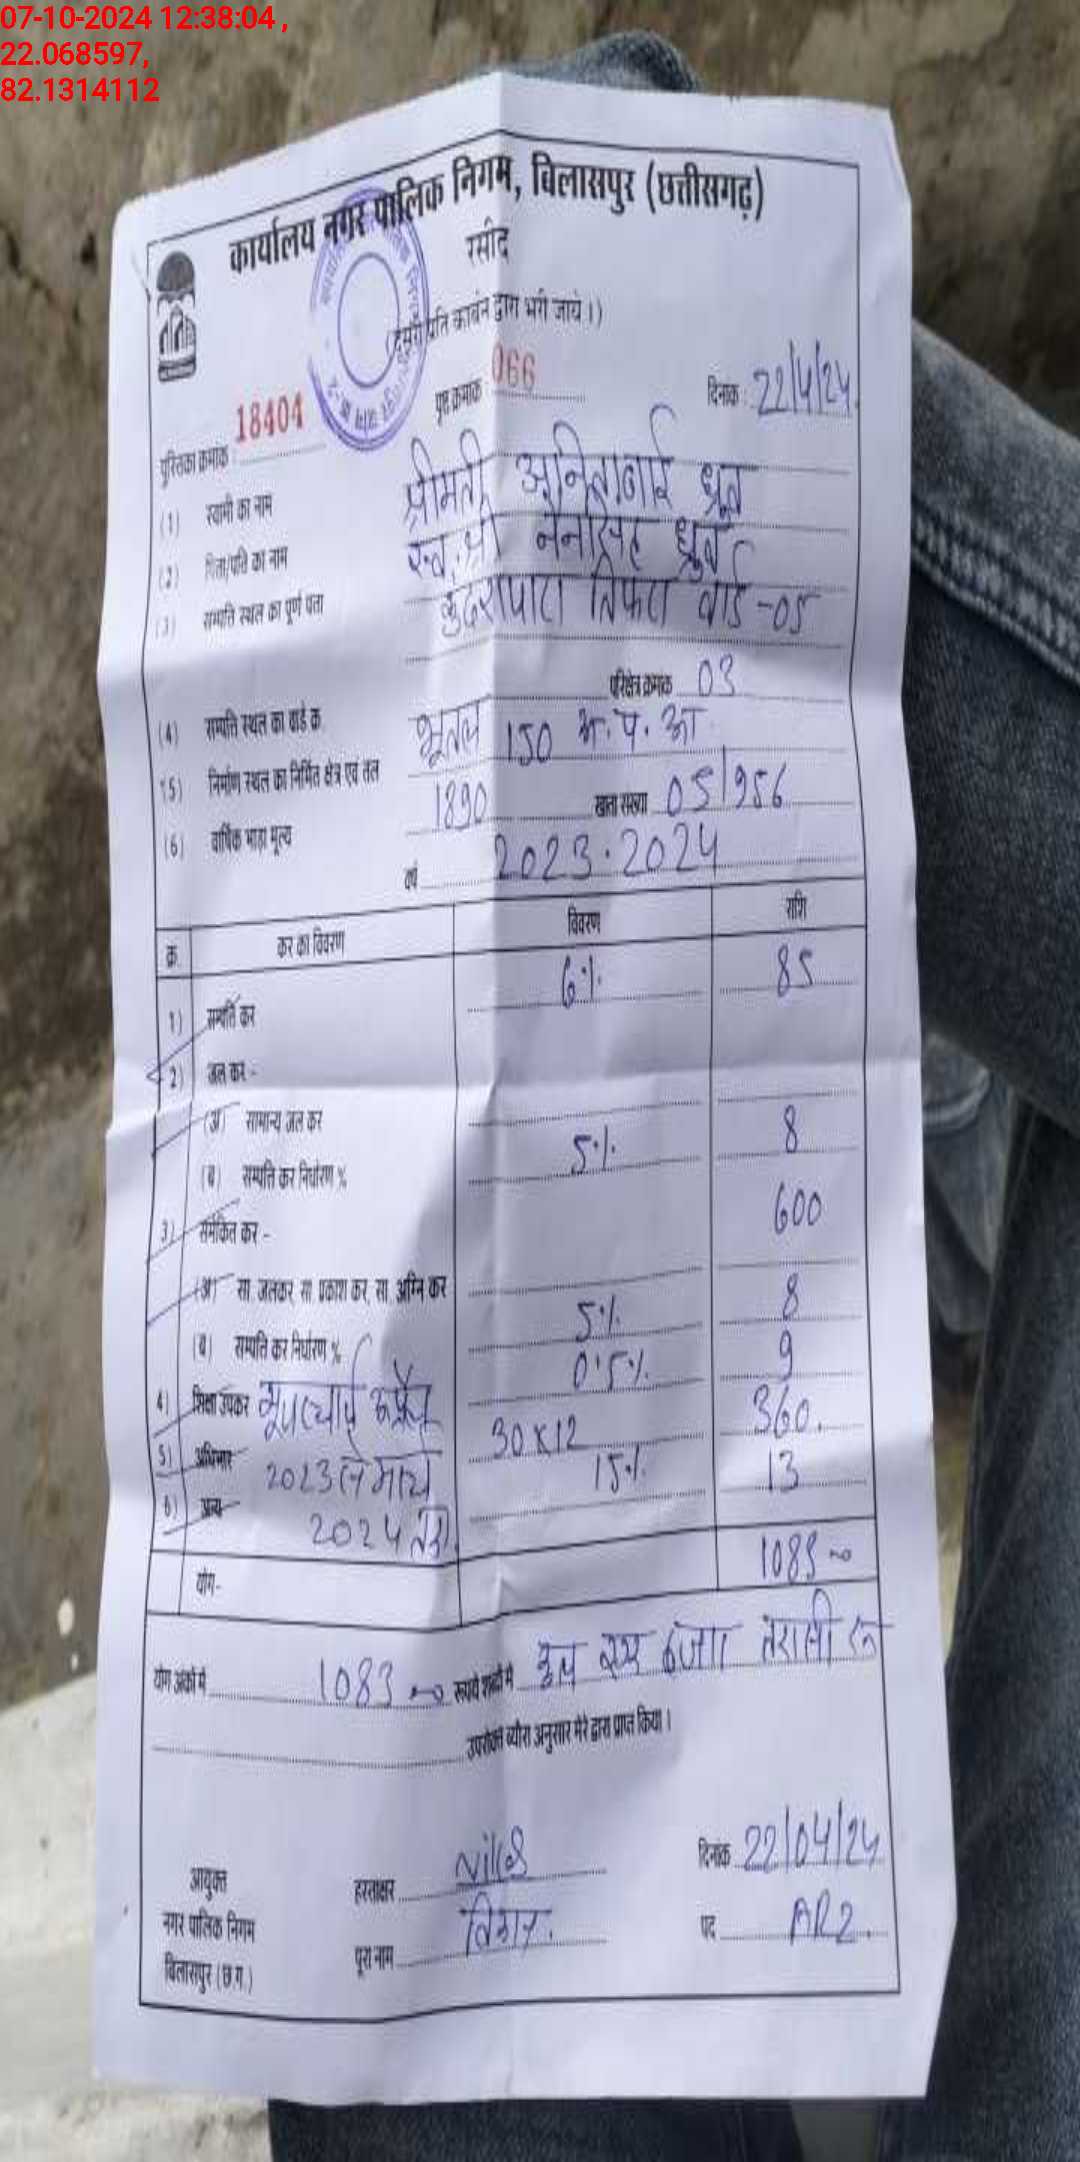 07-10-2024 12:38:04 ,
22.068597,
82.1314112
कार्यालय नगर पालिक निगम, बिलासपुर (छत्तीसगढ़)
रसीद
(दूसरी प्रति कार्बन द्वारा भरी जाये।)
पुस्तिका क्रमांक 18404 पृष्ठ क्रमांक 066 दिनांक : 22/4/24
(1) स्वामी का नाम श्रीमती अनिताबाई ध्रुव
(2) पिता/पति का नाम स्व. श्री नैनसिंह ध्रुव
(3) सम्पत्ति स्थल का पूर्ण पता कुदरापारा तिफरा वार्ड -05
(4) सम्पत्ति स्थल का वार्ड क्र. परिक्षेत्र क्रमांक 03
(5) निर्माण स्थल का निर्मित क्षेत्र एवं तल भूतल 150
(6) वार्षिक भाड़ा मूल्य 1890 खाता संख्या 05/956
वर्ष 2023-2024
क्र. कर का विवरण विवरण राशि
1) सम्पत्ति कर 6% 85
2) जल कर -
(अ) सामान्य जल कर
(ब) सम्पत्ति कर निर्धारण % 5% 8
3) समेकित कर - 600
(अ) सा. जलकर, सा. प्रकाश कर, सा. अग्नि कर
(ब) सम्पत्ति कर निर्धारण % 5% 8
4) शिक्षा उपकर 0.5% 9
5) अधिभार 2023 से मार्च 30x12 360
6) अन्य 2024 तक 15% 13
योग- 1083
योग अंकों में 1083 रूपये शब्दों में
उपरोक्त ब्यौरा अनुसार मेरे द्वारा प्राप्त किया।
आयुक्त
नगर पालिक निगम
बिलासपुर (छ.ग.)
हस्ताक्षर दिनांक 22/04/24
पूरा नाम पद